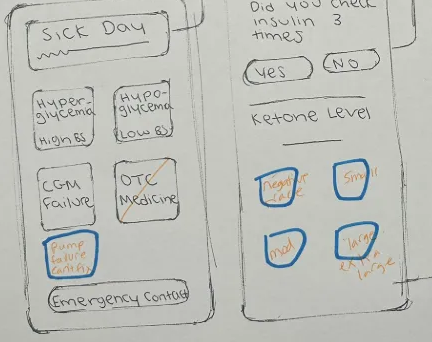 Sick Day
Hyper-
glycemia
High BS
Hypo-
glycema
Low BS
CGM
Failure
OTC
Medicine
Pump
failure
cant fix
Emergency Contact
Did you check
insulin 3
times
Yes
No
Ketone Level
negative
small
mod
large
extra
large